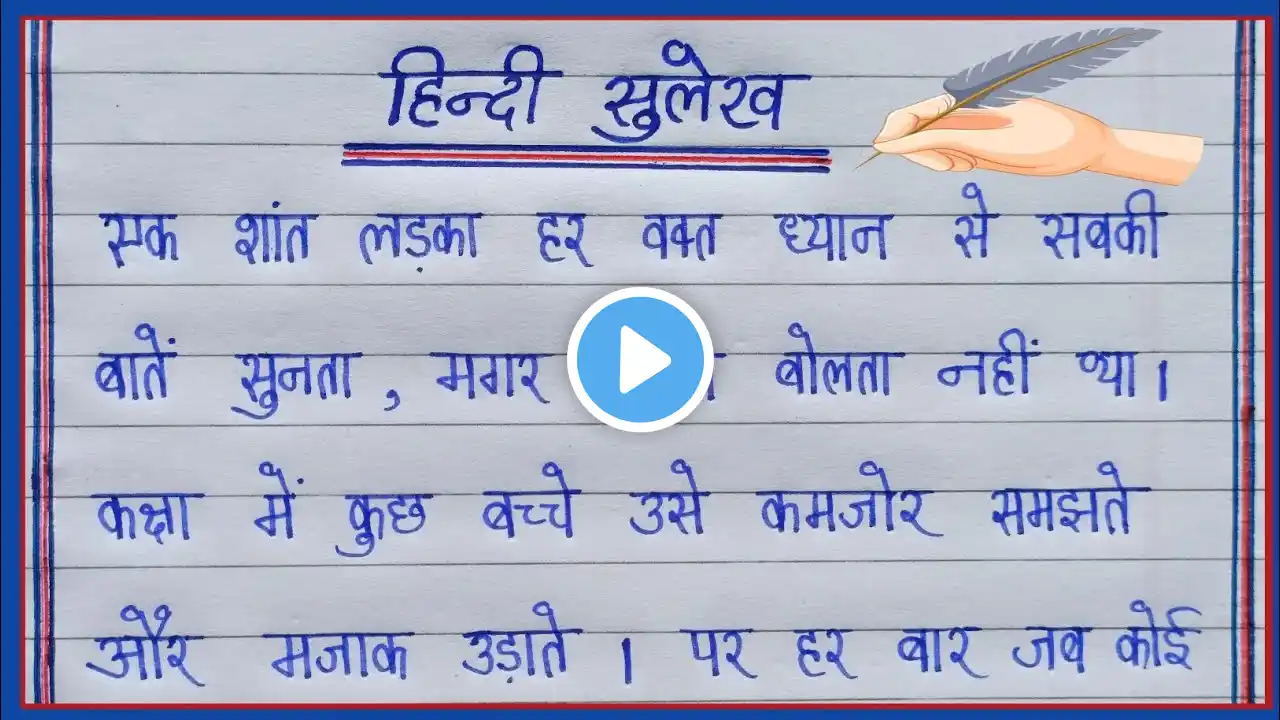 हिन्दी सुलेख
एक शांत लड़का हर वक्त ध्यान से सबकी
बातें सुनता, मगर बोलता नहीं था।
कक्षा में कुछ बच्चे उसे कमजोर समझते
और मजाक उड़ाते । पर हर बार जब कोई